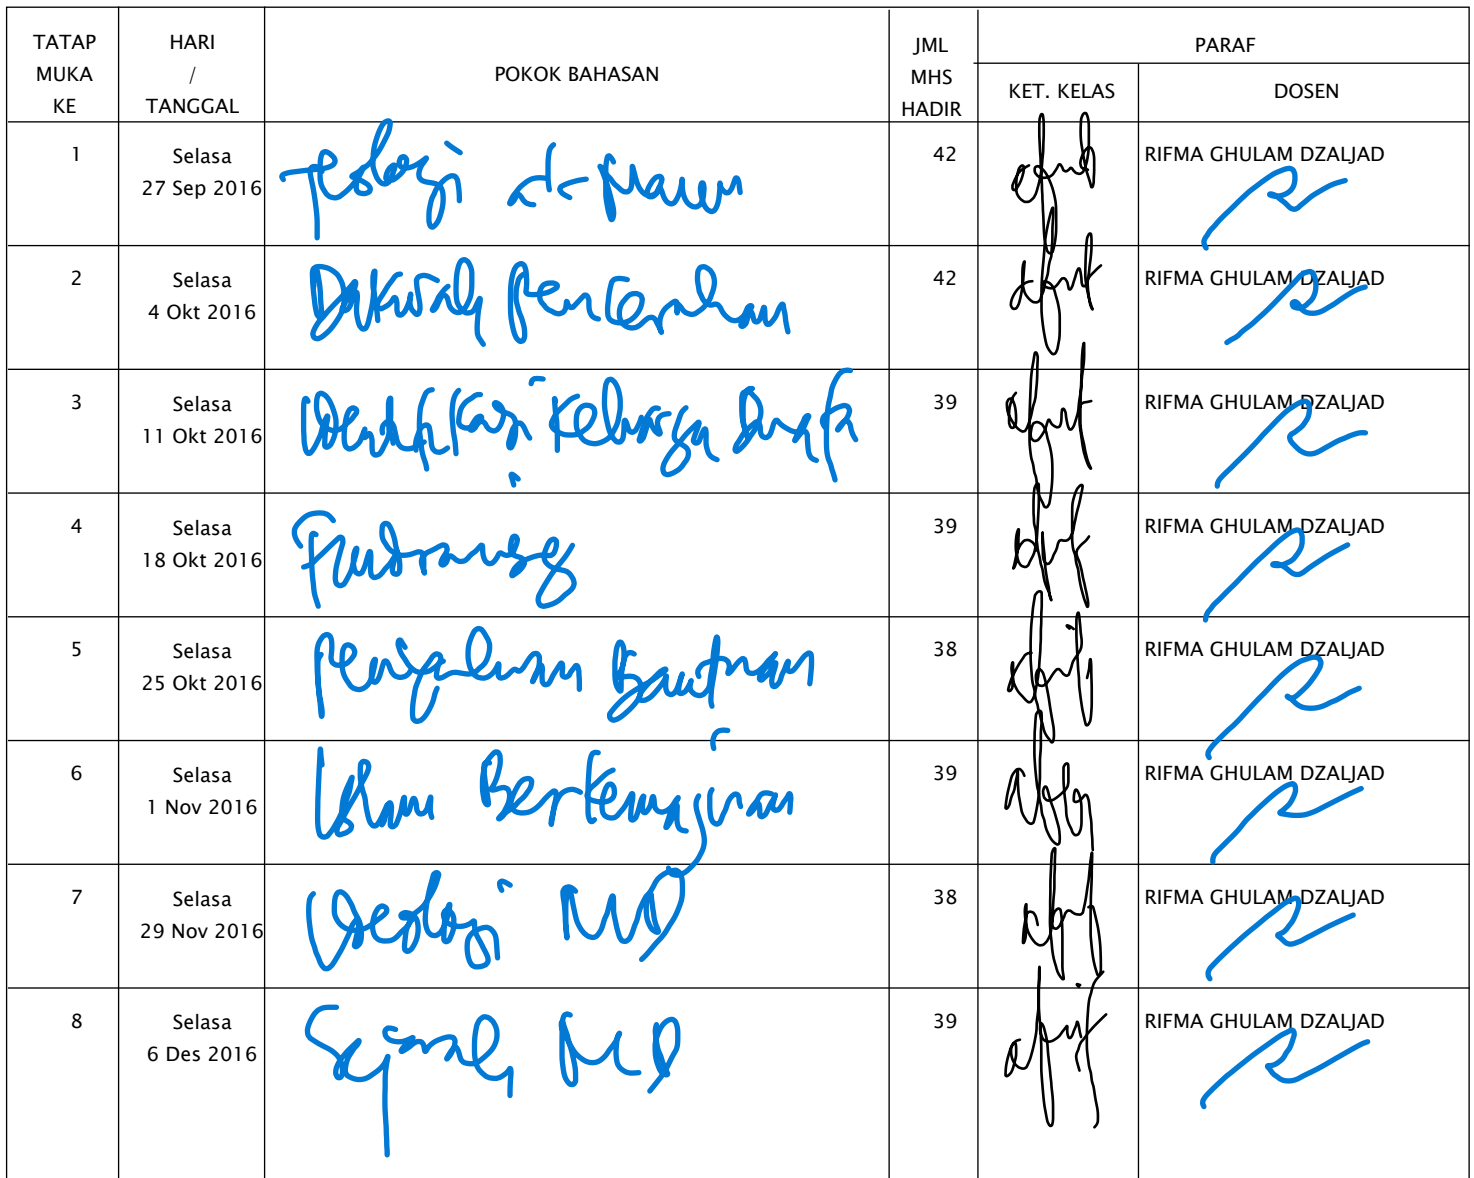 TATAP MUKA KE HARI / TANGGAL POKOK BAHASAN JML MHS HADIR PARAF
KET. KELAS DOSEN
1 Selasa 27 Sep 2016 Teologi 42 RIFMA GHULAM DZALJAD
2 Selasa 4 Okt 2016 Dakwah Pencerahan 42 RIFMA GHULAM DZALJAD
3 Selasa 11 Okt 2016 Identifikasi Keluarga Duafa 39 RIFMA GHULAM DZALJAD
4 Selasa 18 Okt 2016 39 RIFMA GHULAM DZALJAD
5 Selasa 25 Okt 2016 Penyaluran Bantuan 38 RIFMA GHULAM DZALJAD
6 Selasa 1 Nov 2016 Islam Berkemajuan 39 RIFMA GHULAM DZALJAD
7 Selasa 29 Nov 2016 Ideologi MD 38 RIFMA GHULAM DZALJAD
8 Selasa 6 Des 2016 Sejarah MD 39 RIFMA GHULAM DZALJAD